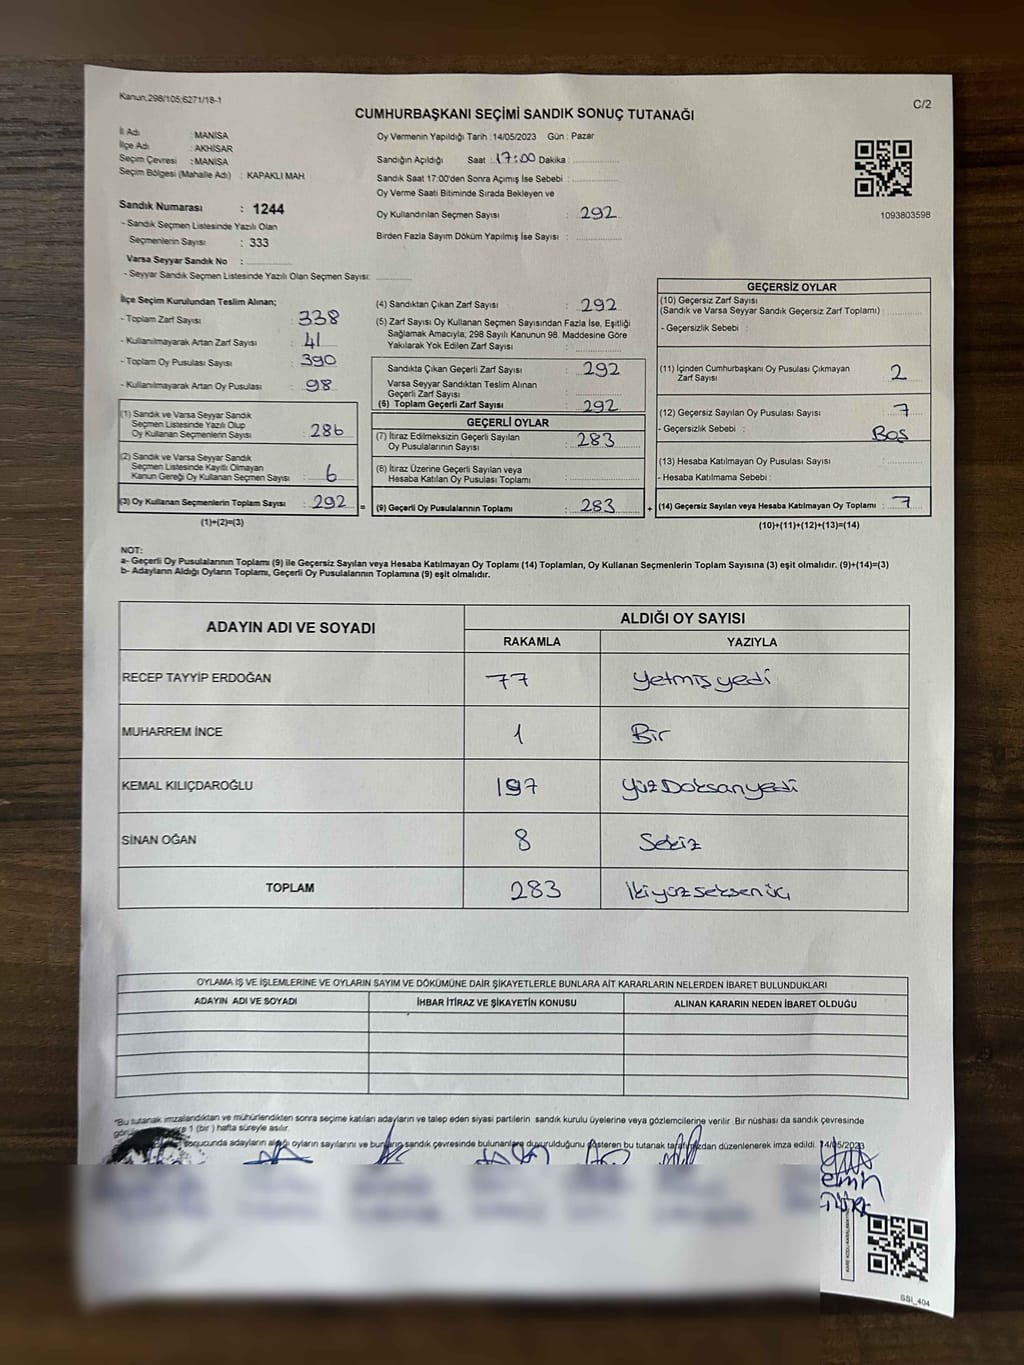 Kanun,298/105;6271/18-1
C/2
CUMHURBAŞKANI SEÇİMİ SANDIK SONUÇ TUTANAĞI
İl Adı : MANİSA
İlçe Adı : AKHİSAR
Seçim Çevresi : MANİSA
Seçim Bölgesi (Mahalle Adı) : KAPAKLI MAH.
Oy Vermenin Yapıldığı Tarih : 14/05/2023 Gün : Pazar
Sandığın Açıldığı Saat : 17:00 Dakika :
Sandık Saat 17:00'den Sonra Açımış İse Sebebi :
Oy Verme Saati Bitiminde Sırada Bekleyen ve
Oy Kullandırılan Seçmen Sayısı : 292
Birden Fazla Sayım Döküm Yapılmış İse Sayısı :
1093803598
Sandık Numarası : 1244
- Sandık Seçmen Listesinde Yazılı Olan
Seçmenlerin Sayısı : 333
Varsa Seyyar Sandık No :
- Seyyar Sandık Seçmen Listesinde Yazılı Olan Seçmen Sayısı:
İlçe Seçim Kurulundan Teslim Alınan;
- Toplam Zarf Sayısı : 338
- Kullanılmayarak Artan Zarf Sayısı : 41
- Toplam Oy Pusulası Sayısı : 390
- Kullanılmayarak Artan Oy Pusulası : 98
(1) Sandık ve Varsa Seyyar Sandık
Seçmen Listesinde Yazılı Olup
Oy Kullanan Seçmenlerin Sayısı : 286
(2) Sandık ve Varsa Seyyar Sandık
Seçmen Listesinde Kayıtlı Olmayan
Kanun Gereği Oy Kullanan Seçmen Sayısı : 6
(3) Oy Kullanan Seçmenlerin Toplam Sayısı : 292 =
(1)+(2)=(3)
(4) Sandıktan Çıkan Zarf Sayısı : 292
(5) Zarf Sayısı Oy Kullanan Seçmen Sayısından Fazla İse, Eşitliği
Sağlamak Amacıyla; 298 Sayılı Kanunun 98. Maddesine Göre
Yakılarak Yok Edilen Zarf Sayısı :
Sandıkta Çıkan Geçerli Zarf Sayısı : 292
Varsa Seyyar Sandıktan Teslim Alınan
Geçerli Zarf Sayısı :
(6) Toplam Geçerli Zarf Sayısı : 292
GEÇERLİ OYLAR
(7) İtiraz Edilmeksizin Geçerli Sayılan
Oy Pusulalarının Sayısı : 283
(8) İtiraz Üzerine Geçerli Sayılan veya
Hesaba Katılan Oy Pusulası Toplamı :
(9) Geçerli Oy Pusulalarının Toplamı : 283 +
GEÇERSİZ OYLAR
(10) Geçersiz Zarf Sayısı
(Sandık ve Varsa Seyyar Sandık Geçersiz Zarf Toplamı) :
- Geçersizlik Sebebi :
(11) İçinden Cumhurbaşkanı Oy Pusulası Çıkmayan
Zarf Sayısı : 2
(12) Geçersiz Sayılan Oy Pusulası Sayısı : 7
- Geçersizlik Sebebi : Boş
(13) Hesaba Katılmayan Oy Pusulası Sayısı :
- Hesaba Katılmama Sebebi :
(14) Geçersiz Sayılan veya Hesaba Katılmayan Oy Toplamı : 7
(10)+(11)+(12)+(13)=(14)
NOT:
a- Geçerli Oy Pusulalarının Toplamı (9) ile Geçersiz Sayılan veya Hesaba Katılmayan Oy Toplamı (14) Toplamları, Oy Kullanan Seçmenlerin Toplam Sayısına (3) eşit olmalıdır. (9)+(14)=(3)
b- Adayların Aldığı Oyların Toplamı, Geçerli Oy Pusulalarının Toplamına (9) eşit olmalıdır.
ADAYIN ADI VE SOYADI ALDIĞI OY SAYISI
RAKAMLA YAZIYLA
RECEP TAYYİP ERDOĞAN 77 Yetmiş yedi
MUHARREM İNCE 1 Bir
KEMAL KILIÇDAROĞLU 197 Yüz Doksan yedi
SİNAN OĞAN 8 Sekiz
TOPLAM 283 İki yüz seksen üç
OYLAMA İŞ VE İŞLEMLERİNE VE OYLARIN SAYIM VE DÖKÜMÜNE DAİR ŞİKAYETLERLE BUNLARA AİT KARARLARIN NELERDEN İBARET BULUNDUKLARI
ADAYIN ADI VE SOYADI İHBAR İTİRAZ VE ŞİKAYETİN KONUSU ALINAN KARARIN NEDEN İBARET OLDUĞU
*Bu tutanak imzalandıktan ve mühürlendikten sonra seçime katılan adayların ve talep eden siyasi partilerin sandık kurulu üyelerine veya gözlemcilerine verilir. Bir nüshası da sandık çevresinde
1 (bir ) hafta süreyle asılır.
sonucunda adayların aldığı oyların sayılarını ve bunların sandık çevresinde bulunanlara duyurulduğunu gösteren bu tutanak tarafımızdan düzenlenerek imza edildi. 14/05/2023
SSI_404